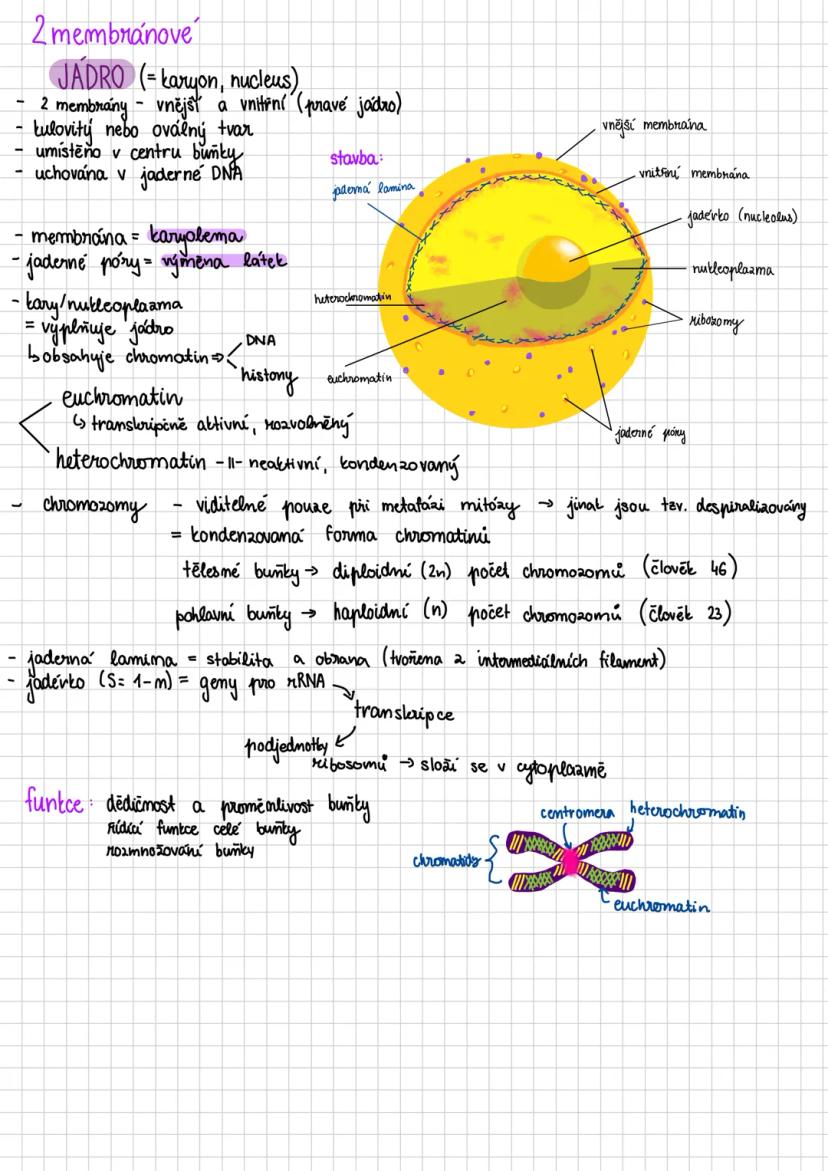 2 membránové
JÁDRO (= karyon, nucleus)
- 2 membrány - vnější a vnitřní (pravé jádro)
- kulovitý nebo oválný tvar
- umístěno v centru buňky
- uchována v jaderné DNA
- membrána = karyolema
- jaderné póry = výměna látek
- kary/nukleoplazma
= vyplňuje jádro
↳ obsahuje chromatin ⇒ DNA
histony
euchromatin
↳ transkripčně aktivní, rozvolněný
heterochromatin -II- neaktivní, kondenzovaný
stavba:
vnější membrána
vnitřní membrána
jaderná lamina
jadérko (nucleolus)
nukleoplazma
heterochromatin
ribozomy
euchromatin
jaderné póry
- chromozomy - viditelné pouze při metafázi mitózy → jinak jsou tzv. despiralizovány
= kondenzovaná forma chromatinů
tělesné buňky → diploidní (2n) počet chromozomů (člověk 46)
pohlavní buňky → haploidní (n) počet chromozomů (člověk 23)
- jaderná lamina = stabilita a obrana (tvořena z intermediálních filament)
- jadérko (S= 1-m) = geny pro rRNA
transkripce
podjednotky
ribosomů → složí se v cytoplazmě
funkce: dědičnost a proměnlivost buňky
řídící funkce celé buňky
rozmnožování buňky
centromera
heterochromatin
chromatidy
euchromatin